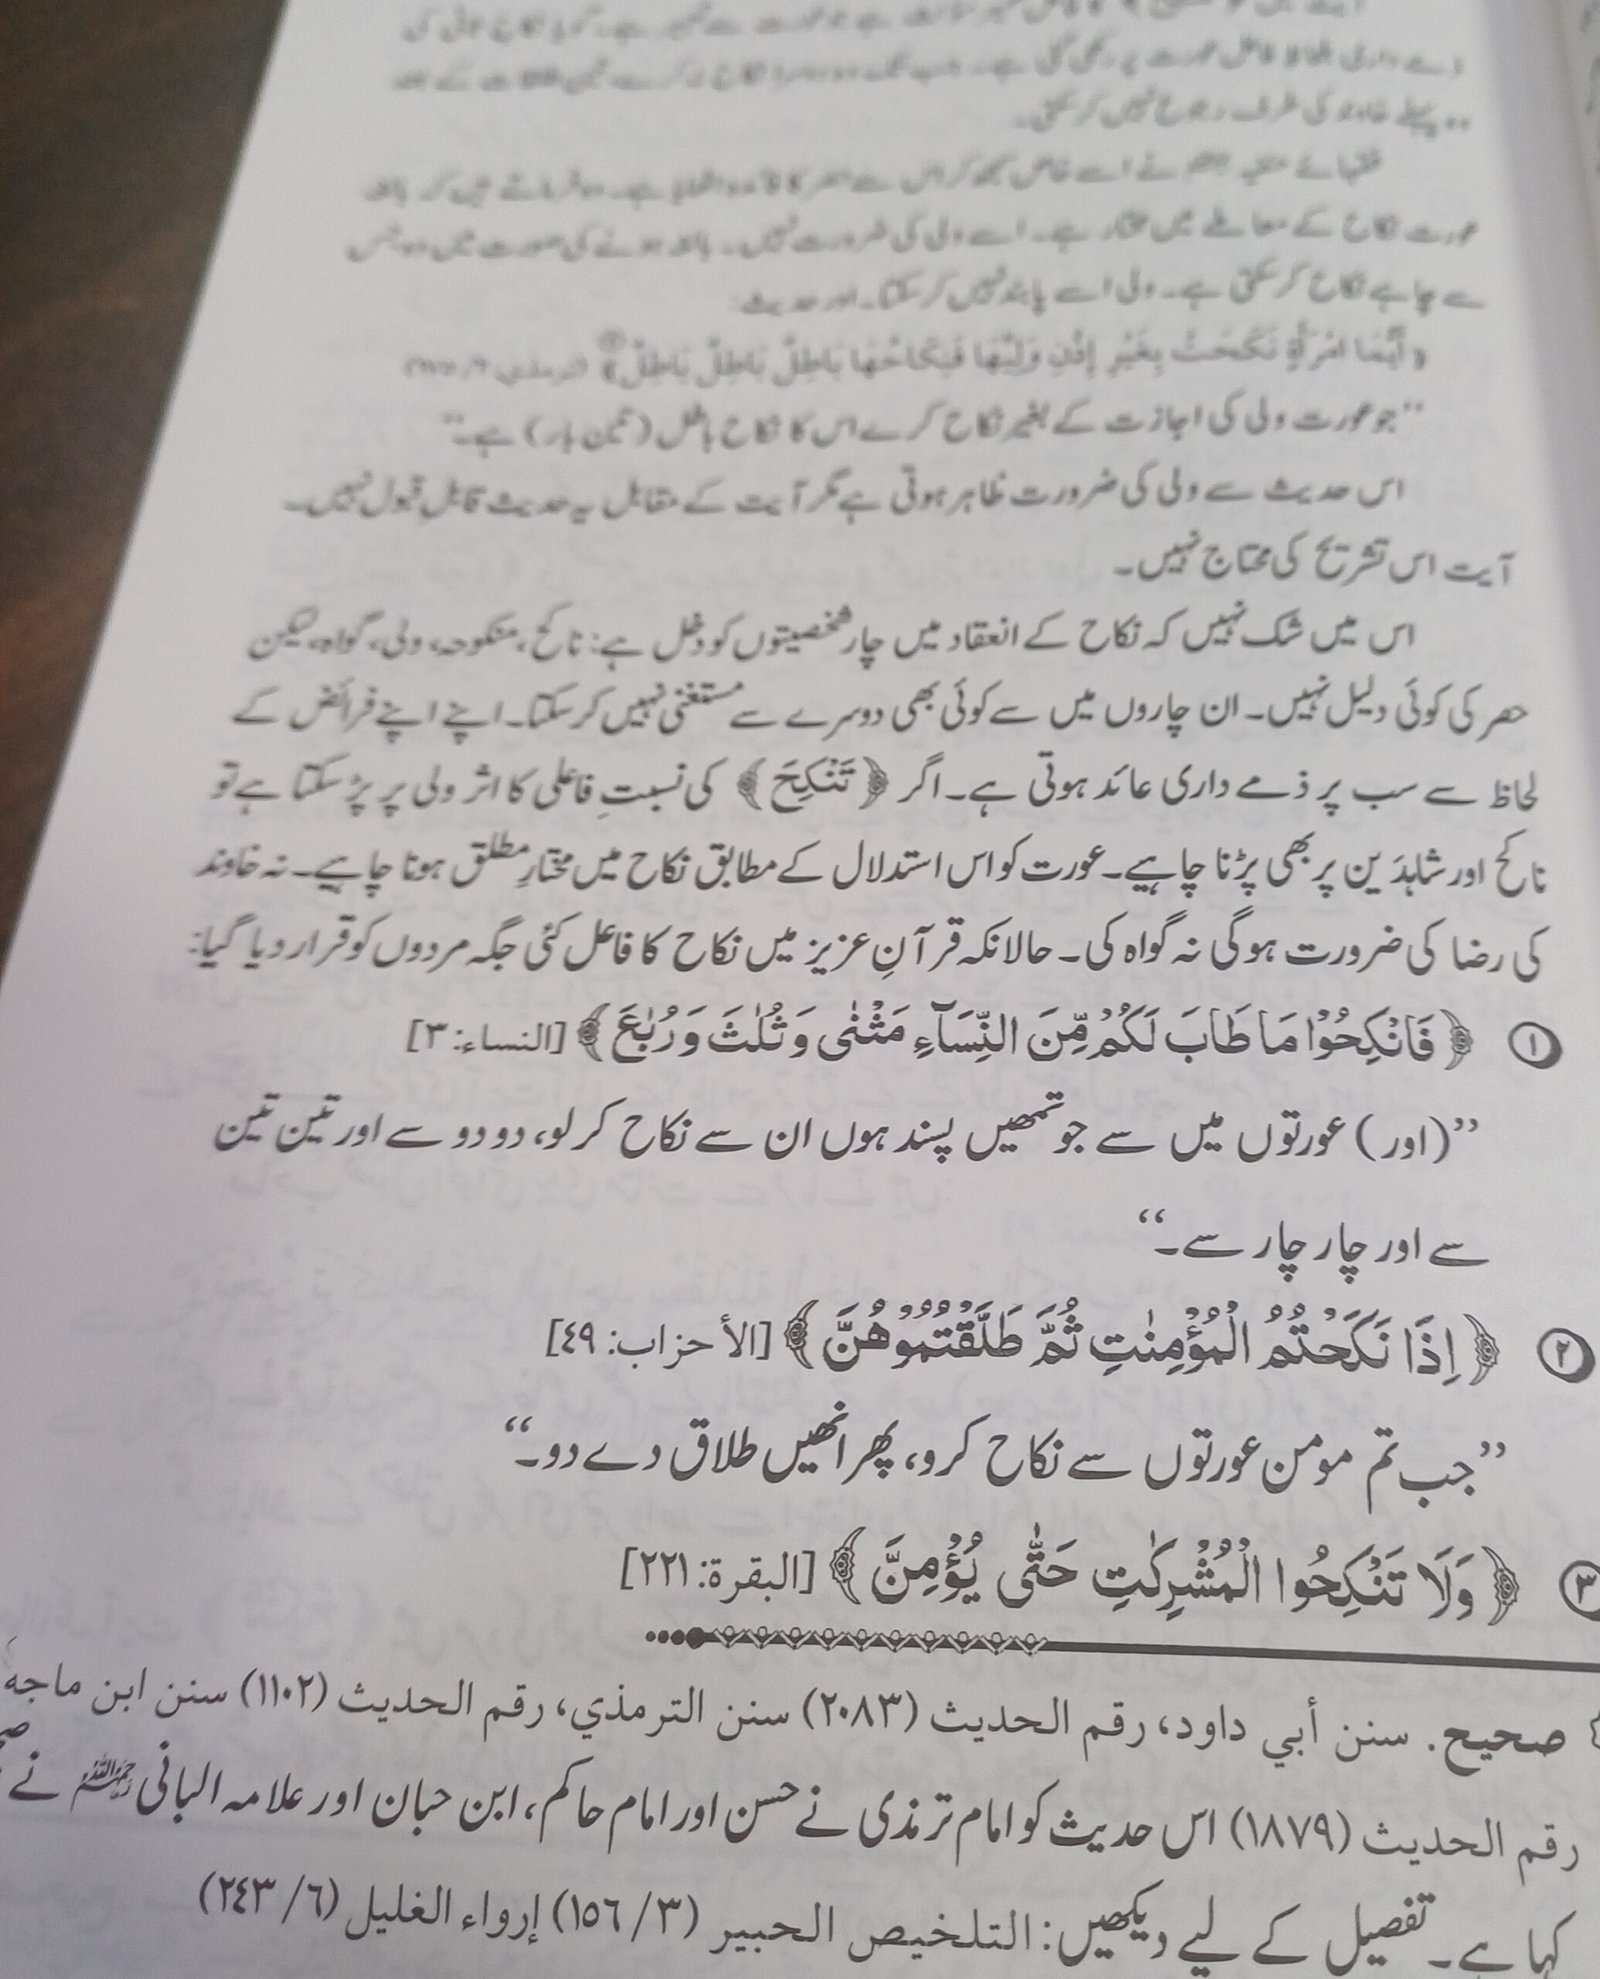 ذمے داری بلحاظ فاعل عورت پر رکھی گئی ہے۔ جب تک وہ دوسرا نکاح نہ کرے تین طلاقات کے بعد
وہ پہلے خاوند کی طرف رجوع نہیں کر سکتی۔
فقہائے حنفیہ نے اسے خاص سمجھ کر اس سے حصر کا فائدہ اٹھایا ہے۔ وہ فرماتے ہیں کہ بالغہ
عورت نکاح کے معاملے میں مختار ہے۔ اسے ولی کی ضرورت نہیں۔ بالغہ ہونے کی صورت میں وہ جس
سے چاہے نکاح کر سکتی ہے۔ ولی اسے پابند نہیں کر سکتا۔ اور حدیث:
«أَيُّمَا امْرَأَةٍ نَكَحَتْ بِغَيْرِ إِذْنِ وَلِيِّهَا فَنِكَاحُهَا بَاطِلٌ بَاطِلٌ بَاطِلٌ»
”جو عورت ولی کی اجازت کے بغیر نکاح کرے اس کا نکاح باطل (تین بار) ہے۔“
اس حدیث سے ولی کی ضرورت ظاہر ہوتی ہے مگر آیت کے مقابل یہ حدیث قابلِ قبول نہیں۔
آیت اس تشریح کی محتاج نہیں۔
اس میں شک نہیں کہ نکاح کے انعقاد میں چار شخصیتوں کو دخل ہے: ناکح، منکوحہ، ولی، گواہ، لیکن
حصر کی کوئی دلیل نہیں۔ ان چاروں میں سے کوئی بھی دوسرے سے مستغنی نہیں کر سکتا۔ اپنے اپنے فرائض کے
لحاظ سے سب پر ذمے داری عائد ہوتی ہے۔ اگر ﴿تَنْكِحَ﴾ کی نسبتِ فاعلی کا اثر ولی پر پڑ سکتا ہے تو
ناکح اور شاہدَین پر بھی پڑنا چاہیے۔ عورت کو اس استدلال کے مطابق نکاح میں مختارِ مطلق ہونا چاہیے۔ نہ خاوند
کی رضا کی ضرورت ہوگی نہ گواہ کی۔ حالانکہ قرآنِ عزیز میں نکاح کا فاعل کئی جگہ مردوں کو قرار دیا گیا:
① ﴿فَانْكِحُوْا مَا طَابَ لَكُمْ مِّنَ النِّسَآءِ مَثْنٰى وَثُلٰثَ وَرُبٰعَ﴾ [النساء: ٣]
”(اور) عورتوں میں سے جو تمھیں پسند ہوں ان سے نکاح کر لو، دو دو سے اور تین تین
سے اور چار چار سے۔“
② ﴿اِذَا نَكَحْتُمُ الْمُؤْمِنٰتِ ثُمَّ طَلَّقْتُمُوْهُنَّ﴾ [الأحزاب: ٤٩]
”جب تم مومن عورتوں سے نکاح کرو، پھر انھیں طلاق دے دو۔“
③ ﴿وَلَا تَنْكِحُوا الْمُشْرِكٰتِ حَتّٰى يُؤْمِنَّ﴾ [البقرة: ٢٢١]
صحيح. سنن أبي داود، رقم الحديث (٢٠٨٣) سنن الترمذي، رقم الحديث (١١٠٢) سنن ابن ماجه،
رقم الحديث (١٨٧٩) اس حدیث کو امام ترمذی نے حسن اور امام حاکم، ابن حبان اور علامہ البانی رحمہ اللہ نے
کہا ہے۔ تفصیل کے لیے دیکھیں: التلخيص الحبير (٣/ ١٥٦) إرواء الغليل (٦/ ٢٤٣)